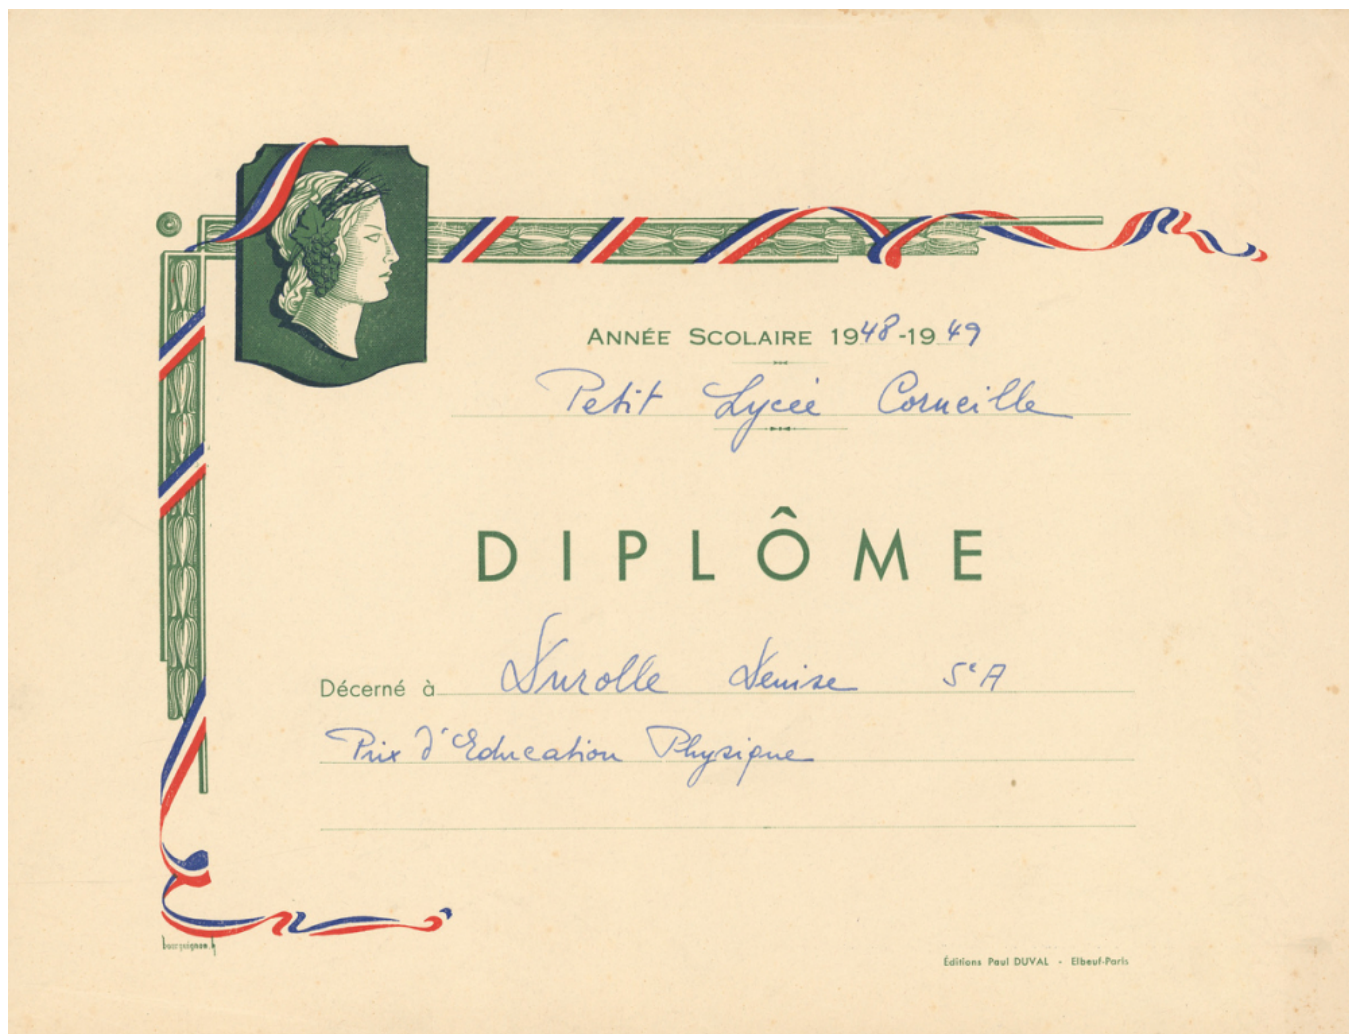 ANNÉE SCOLAIRE 1948-1949
Petit Lycée Corneille
DIPLÔME
Décerné à Durolle Denise 5e A
Prix d'Education Physique
bourguignon.h
Éditions Paul DUVAL - Elbeuf-Paris